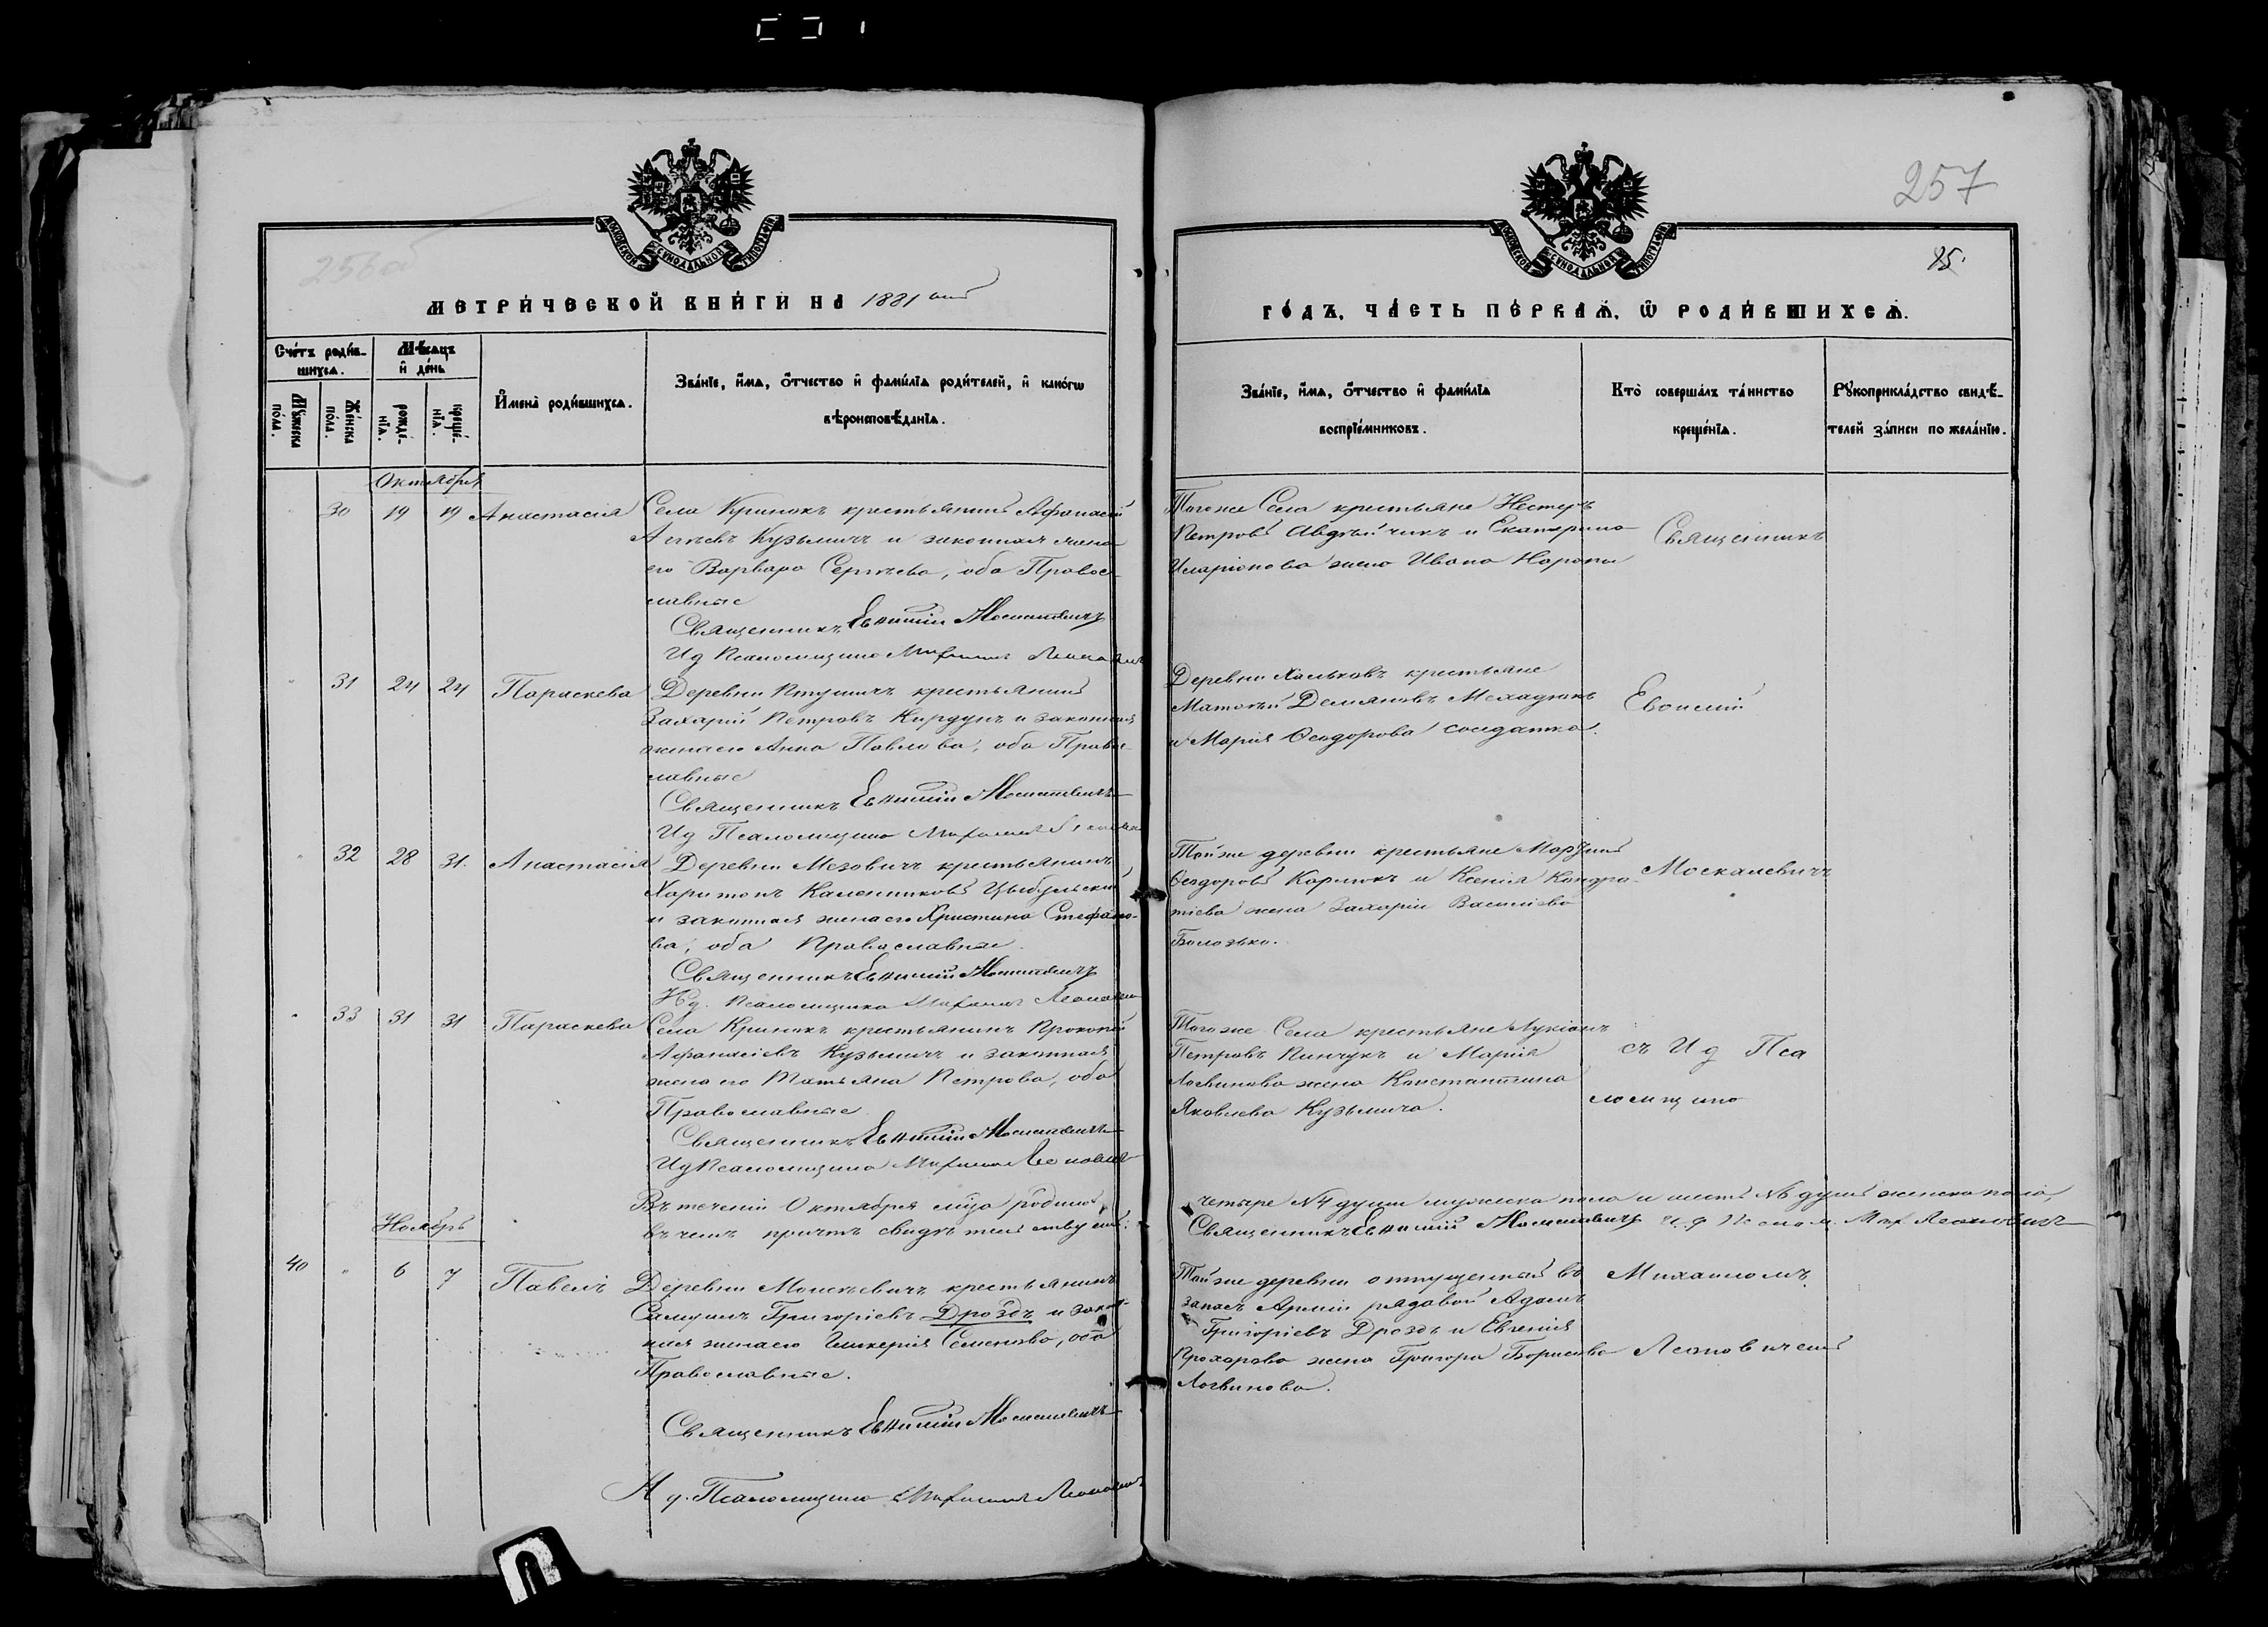 257
256об
15.
МЕТРИ́ЧЕСКОЙ КНИ́ГИ НА 1881 ый
ГО́ДЪ, ЧА́СТЬ ПЕ́РВАѦ, Ѡ РОДИ́ВШИХСѦ.
Сче́тъ роди́в-
шихсѧ.
Мѣ́сѧцъ
и҆ де́нь
Мꙋ́жеска по́ла.
Же́нска по́ла.
рожде́-
нїѧ.
креще́-
нїѧ.
И҆мена̀ роди́вшихсѧ.
Зва́нїе, и҆́мѧ, ѻ҆́тчество и҆ фами́лїѧ роди́телей, и҆ како́гѡ
вѣроисповѣ́данїѧ.
Зва́нїе, и҆́мѧ, ѻ҆́тчество и҆ фами́лїѧ
воспрїе́мниковъ.
Кто̀ соверша́лъ та́инство
креще́нїѧ.
Рꙋкоприкла́дство свидѣ́-
телей за́писи по жела́нїю.
Октябрь
30 19 19 Анастасія
Села Кринокъ крестьянинъ Афанасій
Кузьмичъ и законная жена
его Варвара Сергѣева, оба Правос-
лавные
Священникъ Евѳимій Москалевичъ
Ид Псаломщика Михаилъ Леонович
Тогоже Села крестьяне Нестеръ
Петровъ Авдѣйчикъ и Екатерина
Иларіонова жена Ивана
Священникъ
31 24 24 Параскева
Деревни Птушичъ крестьянинъ
Захарій Петровъ Кирдунъ и законная
жена его Анна Павлова, оба Правос-
лавные
Священникъ Евѳимій Москалевичъ
Ид Псаломщика Михаилъ
Деревни Хальковъ крестьяне
Матвѣй Демяновъ
и Марія Ѳеодорова солдатка.
Евѳимій
32 28 31. Анастасія
Деревни Мезовичъ крестьянинъ
Харитонъ Калениковъ Цыбульскій
и законная жена его Христина Стефано-
ва, оба Православные.
Священникъ Евѳимій Москалевичъ
Ид. Псаломщика Михаилъ Леонович
Тойже деревни крестьяне
Ѳеодоровъ Карпюкъ и Ксенія Кондра-
тіева жена Захарія Василіева
Болозько.
Москалевичъ
33 31 31 Параскева
Села Кринокъ крестьянинъ Прокопій
Афанасіевъ Кузьмичъ и законная
жена его Татьяна Петрова, оба
Православные
Священникъ Евѳимій Москалевичъ
Ид Псаломщика Михаилъ Леонович
Тогоже Села крестьяне Лукіанъ
Петровъ Пинчукъ и Марія
Логвинова жена Константина
Яковлева Кузьмича.
съ И д Пса
ломщика
Въ теченіи Октября м-ца родилось четыре №4 души мужеска пола и шесть №6 душъ женска пола,
въ чемъ причтъ свидѣтельствуетъ. Священникъ Евѳимій Москалевичъ и. д Псалом. Мих Леоновичъ
Ноябрь
40 6 7 Павелъ
Деревни Моисѣевичъ крестьянинъ
Самуилъ Григоріевъ Дроздъ и закон-
ная жена его Гликерія Семенова, оба
Православные.
Священникъ Евѳимій Москалевичъ
И д. Псаломщика Михаилъ Леонович
Тойже деревни отпущенный въ
запасъ Арміи рядовой Адамъ
Григоріевъ Дроздъ и Евгенія
Прохорова жена Григорія Борисова
Логвинова.
Михаиломъ
Леоновичемъ